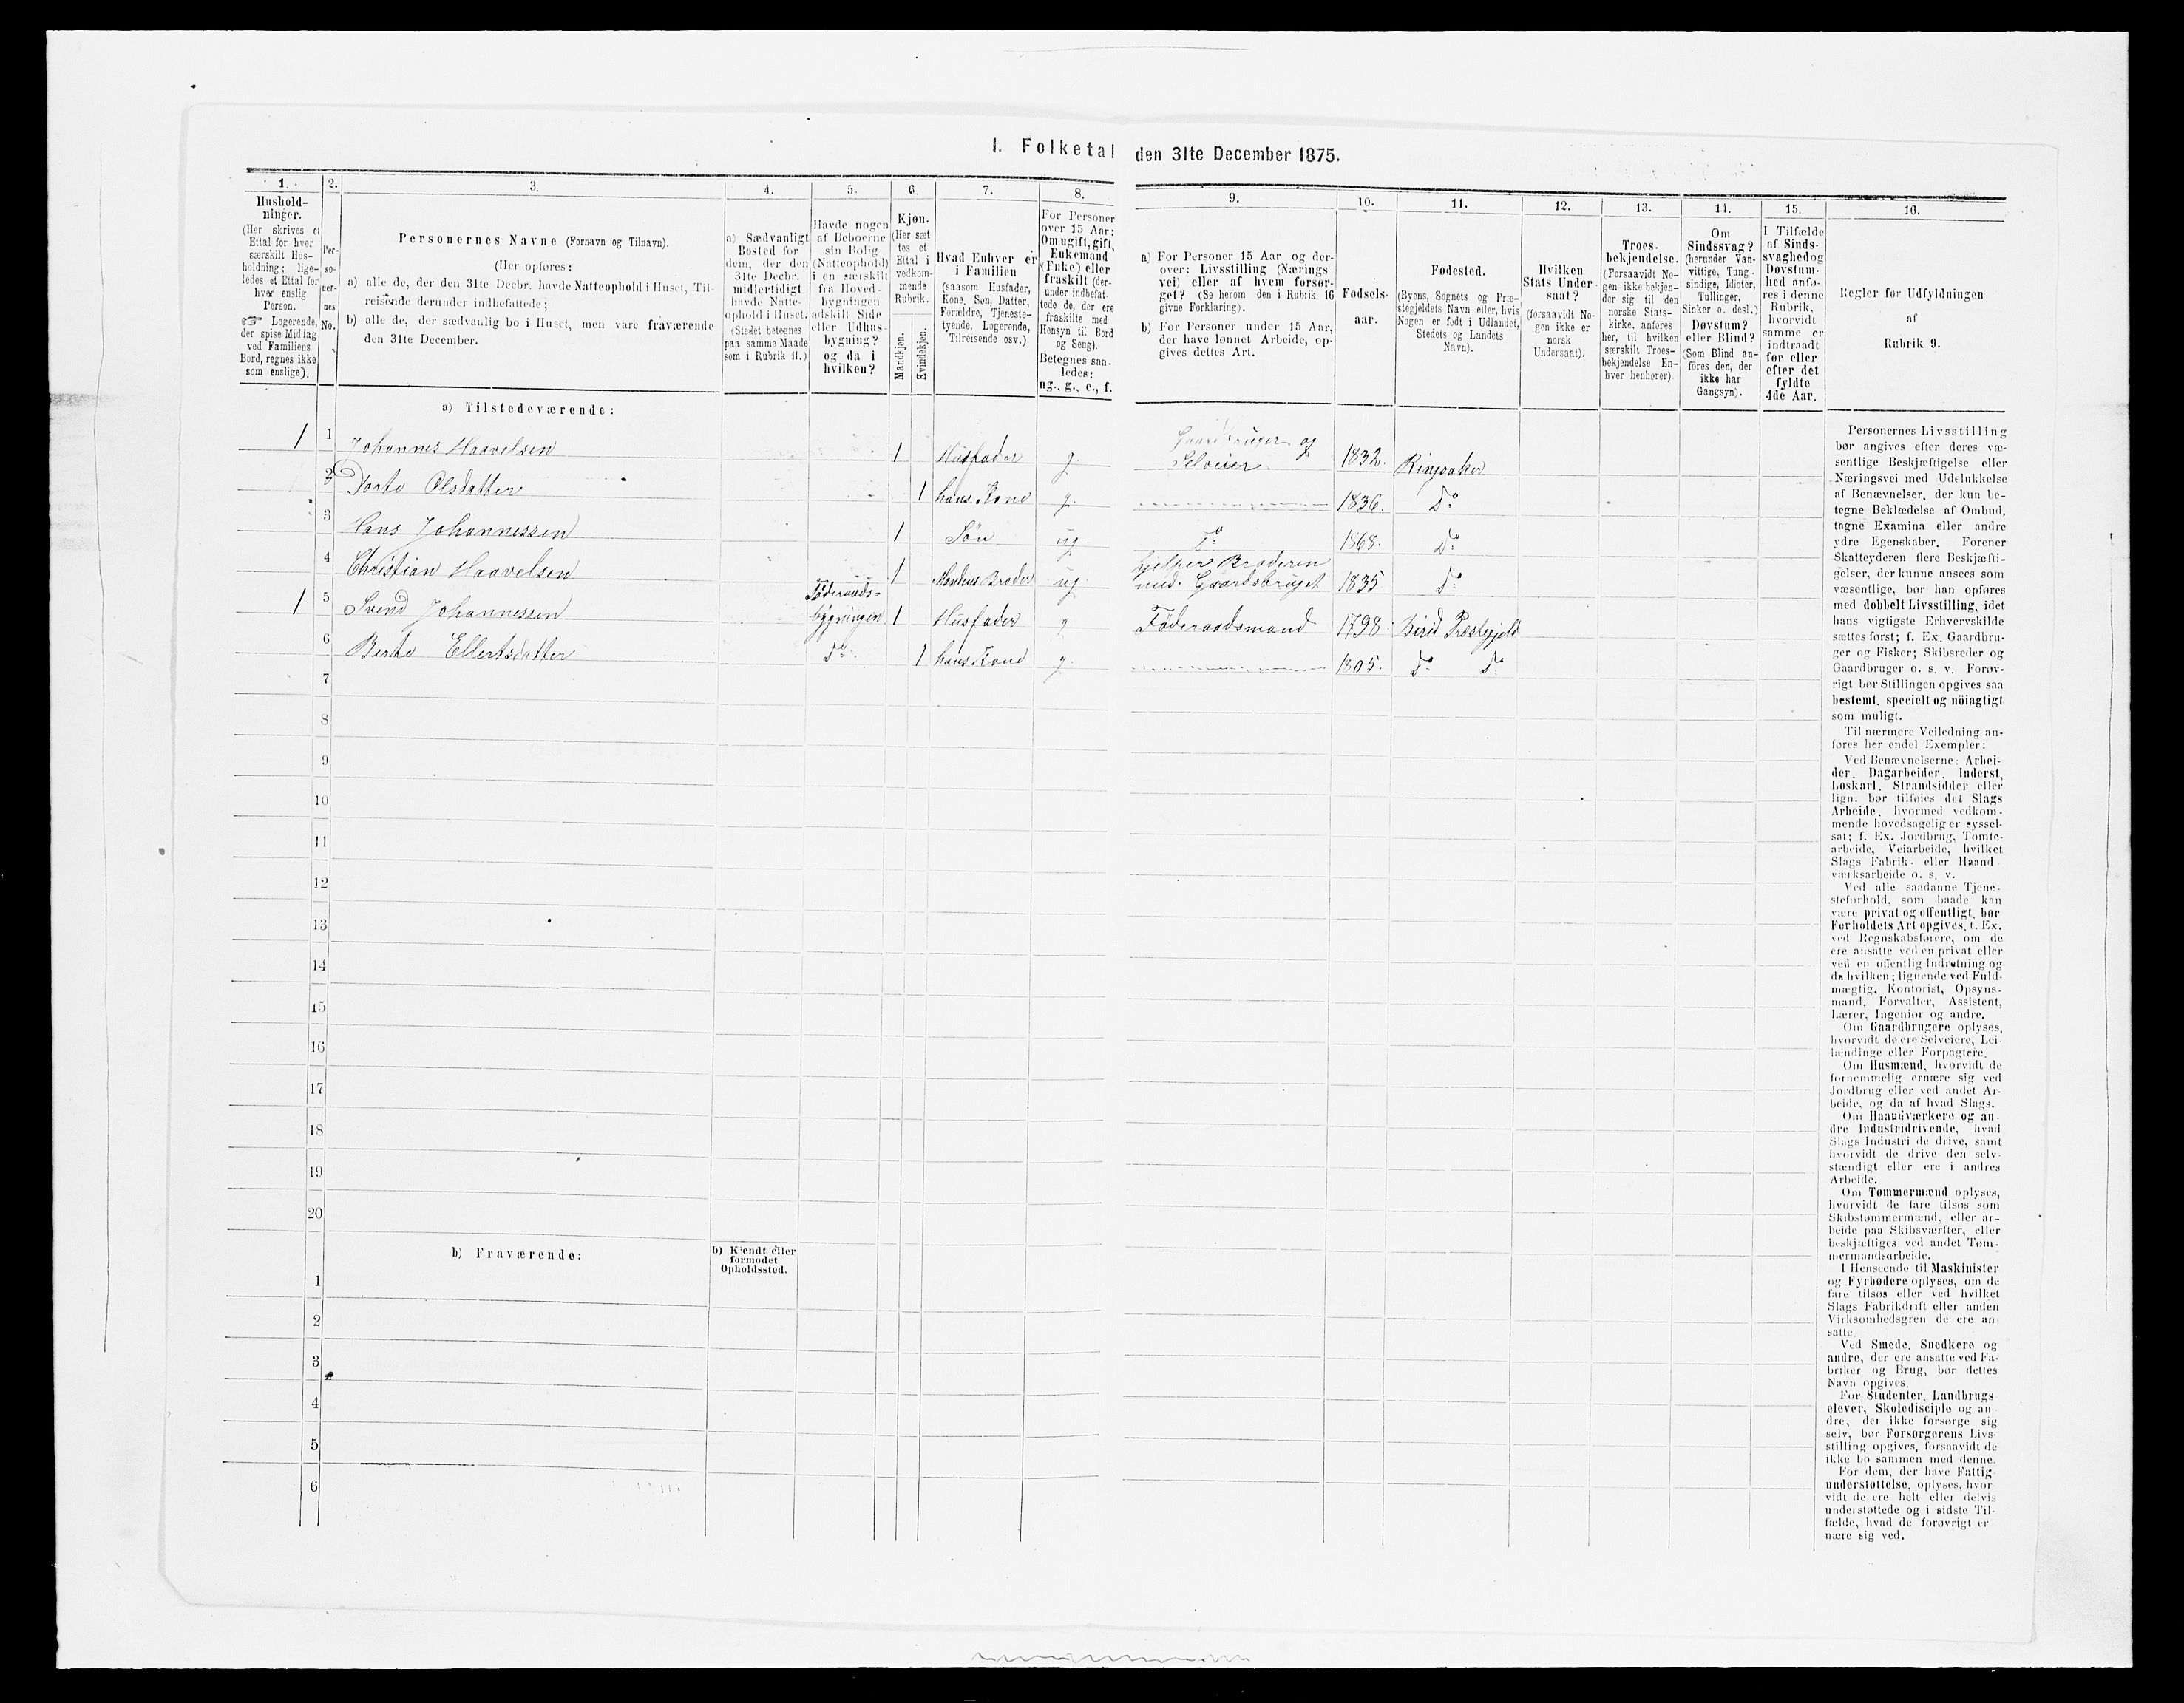 I. Folketal den 31te December 1875.
1. 2. 3. 4. 5. 6. 7. 8. 9. 10. 11. 12. 13. 14. 15. 16.
Hushold-
ninger.
(Her skrives et
Ettal for hver
særskilt Hus-
holdning; lige-
ledes et Ettal for
hver enslig
Person.
☞ Logerende,
der spise Middag
ved Familiens
Bord, regnes ikke
som enslige).
Per-
so-
ner-
nes
No.
Personernes Navne (Fornavn og Tilnavn).
(Her opføres:
a) alle de, der den 31te Decbr. havde Natteophold i Huset, Til-
reisende derunder indbefattede;
b) alle de, der sædvanlig bo i Huset, men vare fraværende
den 31te December.
a) Sædvanligt
Bosted for
dem, der den
31te Decbr.
midlertidigt
havde Natte-
ophold i Huset.
(Stedet betegnes
paa samme Maade
som i Rubrik 11.)
Havde nogen
af Beboerne
sin Bolig
(Natteophold)
i en særskilt
fra Hoved-
bygningen
adskilt Side
eller Udhus-
bygning?
og da i
hvilken?
Kjøn.
(Her sæt
tes et
Ettal i
vedkom-
mende
Rubrik.
Mandkjøn.
Kvindekjøn.
Hvad Enhver er
i Familien
(saasom Husfader,
Kone, Søn, Datter,
Forældre, Tjeneste-
tyende, Logerende,
Tilreisende osv.)
For Personer
over 15 Aar:
Om ugift, gift,
Enkemand
(Enke) eller
fraskilt (der-
under indbefat-
tede de, der ere
fraskilte med
Hensyn til Bord
og Seng).
Betegnes saa-
ledes:
ug., g., e., f.
a) For Personer 15 Aar og der-
over: Livsstilling (Nærings
vei) eller af hvem forsør-
get? (Se herom den i Rubrik 16
givne Forklaring).
b) For Personer under 15 Aar,
der have lønnet Arbeide, op-
gives dettes Art.
Fødsels-
aar.
Fødested.
(Byens, Sognets og Præ-
stegjeldets Navn eller, hvis
Nogen er født i Udlandet,
Stedets og Landets
Navn).
Hvilken
Stats Under-
saat?
(forsaavidt No-
gen ikke er
norsk
Undersaat).
Troes-
bekjendelse.
(Forsaavidt No-
gen ikke bekjen-
der sig til den
norske Stats-
kirke, anføres
her, til hvilken
særskilt Troes-
bekjendelse En-
hver henhører)
Om
Sindssvag?
(herunder Van-
vittige, Tung-
sindige, Idioter,
Tullinger,
Sinker o. desl.)
Døvstum?
eller Blind?
(Som Blind an-
føres den, der
ikke har
Gangsyn).
I Tilfælde
af Sinds-
svaghed og
Døvstum-
hed anfø-
res i denne
Rubrik,
hvorvidt
samme er
indtraadt
før eller
efter det
fyldte
4de Aar.
Regler for Udfyldningen
af
Rubrik 9.
a) Tilstedeværende:
1 1 Johannes Haavelsen 1 Husfader g. Gaardbruger og Selveier 1832. Ringsaker
2 Dorte Olsdatter 1 hans Kone g. 1836. Do
3 Hans Johannessen 1 Søn ug Do 1868. Do
4 Christian Haavelsen 1 Mandens Broder ug. hjelper Broderen med Gaardsbruget 1835 Do
1 5 Svend Johannessen Föderaads-bygningen 1 Husfader g Föderaadsmand 1798 Birid Præstegjeld
6 Berte Ellertsdatter Do 1 hans Kone g. 1805. Do Do
7
8
9
10
11
12
13
14
15
16
17
18
19
20
b) Fraværende:
b) Kjendt eller
formodet
Opholdssted.
1
2
3
4
5
6
Personernes Livsstilling
bør angives efter deres væ-
sentlige Beskjæftigelse eller
Næringsvei med Udelukkelse
af Benævnelser, der kun be-
tegne Beklædelse af Ombud,
tagne Examina eller andre
ydre Egenskaber. Forener
Skatteyderen flere Beskjæfti-
gelser, der kunne ansees som
væsentlige, bør han opføres
med dobbelt Livsstilling, idet
hans vigtigste Erhvervskilde
sættes først; f. Ex. Gaardbru-
ger og Fisker; Skibsreder og
Gaardbruger o. s. v. Forøv-
rigt bør Stillingen opgives saa
bestemt, specielt og nöiagtigt
som muligt.
Til nærmere Veiledning an-
føres her endel Exempler:
Ved Benævnelserne: Arbei-
der, Dagarbeider, Inderst,
Løskarl, Strandsidder eller
lign. bør tilføies det Slags
Arbeide, hvormed vedkom-
mende hovedsagelig er syssel-
sat; f. Ex. Jordbrug, Tomte-
arbeide, Veiarbeide, hvilket
Slags Fabrik- eller Haand-
værksarbeide o. s. v.
Ved alle saadanne Tjene-
steforhold, som baade kan
være privat og offentligt, bør
Forholdets Art opgives, f. Ex.
ved Regnskabsførere, om de
ere ansatte ved en privat eller
ved en offentlig Indretning og
da hvilken; lignende ved Fuld-
mægtig, Kontorist, Opsyns-
mand, Forvalter, Assistent,
Lærer, Ingeniør og andre.
Om Gaardbrugere oplyses,
hvorvidt de ere Selveiere, Lei-
lændinge eller Forpagtere.
Om Husmænd, hvorvidt de
fornemmelig ernære sig ved
Jordbrug eller ved andet Ar-
beide, og da af hvad Slags.
Om Haandværkere og an-
dre Industridrivende, hvad
Slags Industri de drive, samt
hvorvidt de drive den selv-
stændigt eller ere i andres
Arbeide.
Om Tømmermænd oplyses,
hvorvidt de fare tilsøs som
Skibstømmermænd, eller ar-
beide paa Skibsværfter, eller
beskjæftiges ved andet Tøm-
mermandsarbeide.
I Henseende til Maskinister
og Fyrbødere oplyses, om de
fare tilsøs eller ved hvilket
Slags Fabrikdrift eller anden
Virksomhedsgren de ere an-
satte.
Ved Smede, Snedkere og
andre, der ere ansatte ved Fa-
briker og Brug, bør dettes
Navn opgives.
For Studenter, Landbrugs
elever, Skoledisciple og an
dre, der ikke forsørge sig
selv, bør Forsørgerens Livs-
stilling opgives, forsaavidt de
ikke bo sammen med denne.
For dem, der have Fattig-
understøttelse, oplyses, hvor-
vidt de ere helt eller delvis
understøttede og i sidste Til-
fælde, hvad de forøvrigt er
nære sig ved.